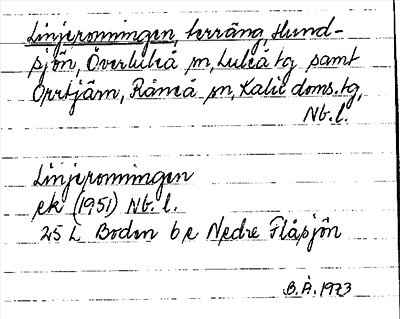 Linjeronningen, terräng, Hund-
sjön, Överluleå sn, Luleå tg samt
Orrtjärn, Råneå sn, Kalix doms.tg,
Nb. l.
Linjeronningen
ek (1951) Nb. l.
25 L Boden 6 e Nedre Flåsjön
B.Å. 1973